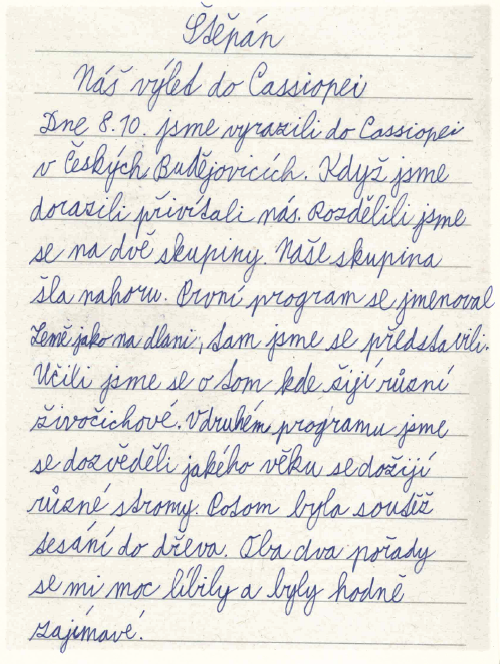 Štěpán
Náš výlet do Cassiopei
Dne 8.10. jsme vyrazili do Cassiopei
v Českých Budějovicích. Když jsme
dorazili přivítali nás. Rozdělili jsme
se na dvě skupiny. Naše skupina
šla nahoru. První program se jmenoval
Země jako na dlani, tam jsme se představili.
Učili jsme se o tom kde žijí různí
živočichové. V druhém programu jsme
se dozvěděli jakého věku se dožijí
různé stromy. Potom byla soutěž
tesání do dřeva. Oba dva pořady
se mi moc líbily a byly hodně
zajímavé.